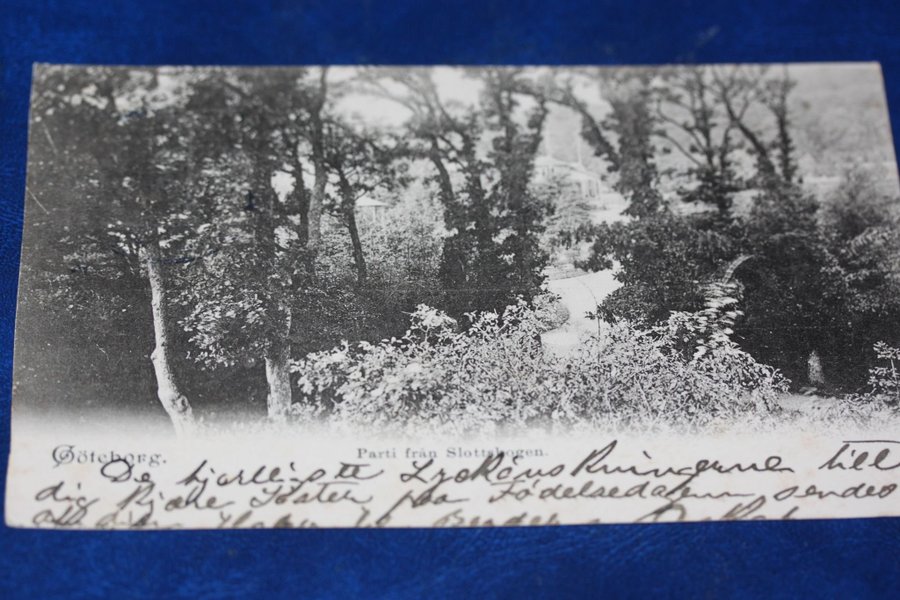 Göteborg. Parti från Slottskogen.
De hjertligste Lyckönskningerne till
dig Kjære Søster paa Fødelsedagen sendes